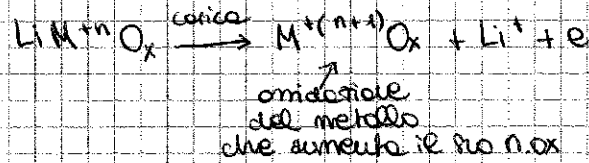 LiM⁺ⁿOₓ —carica→ M⁺⁽ⁿ⁺¹⁾Oₓ + Li⁺ + e
ossidazione
del metallo
che aumenta il suo n.ox